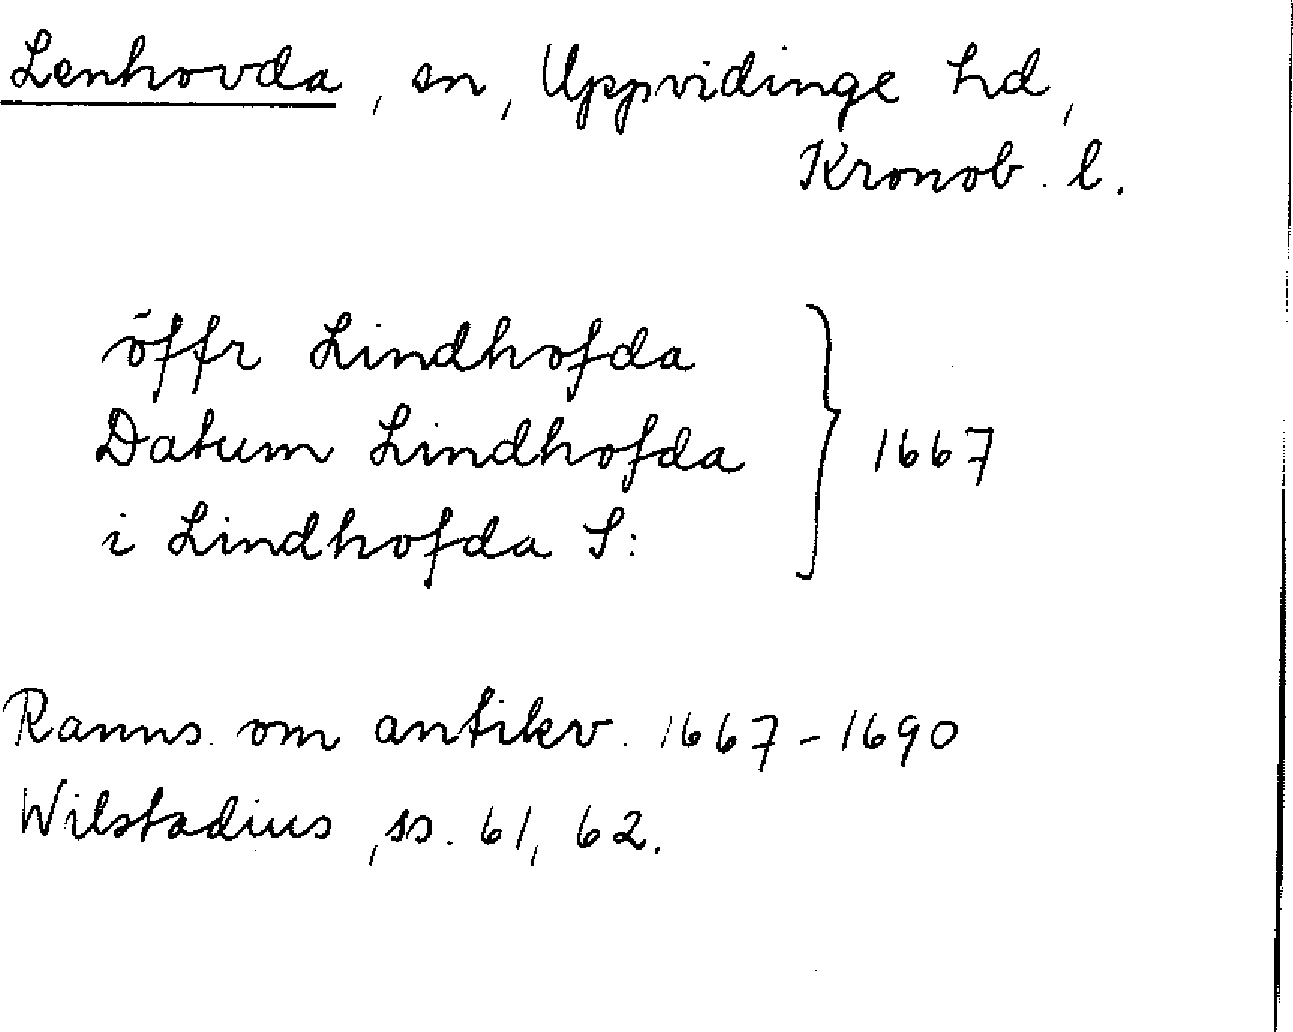 Lenhovda, sn, Uppvidinge hd,
Kronob. l.
öffr Lindhofda
Datum Lindhofda } 1667
i Lindhofda S:
Ranns. om antikv. 1667-1690
Wilstadius, ss. 61, 62.